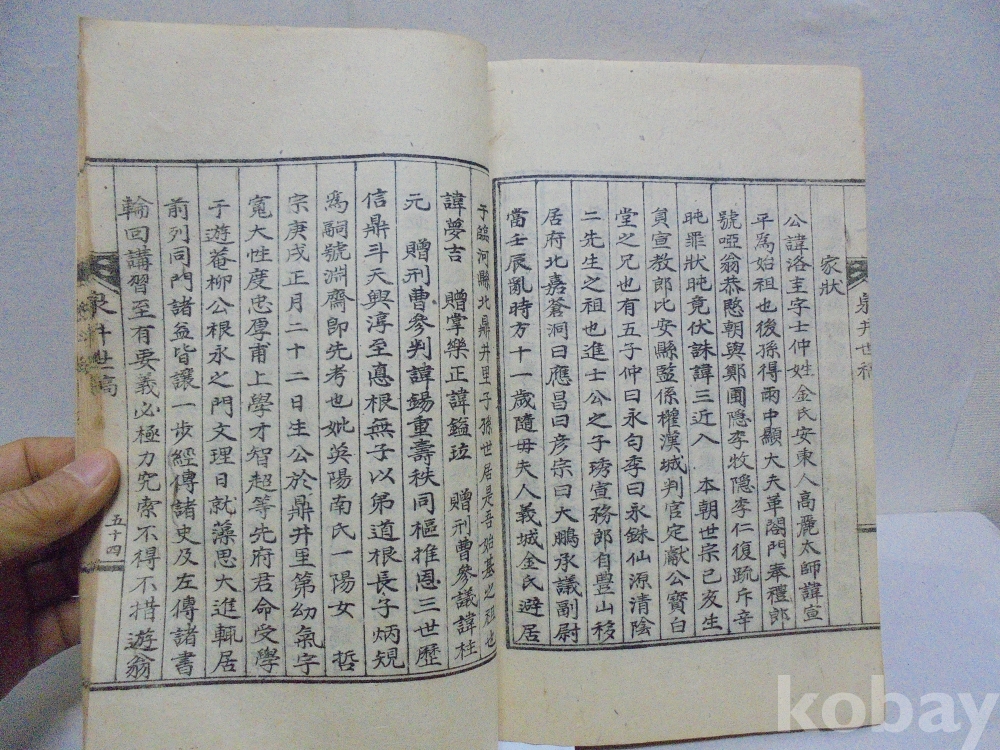 家狀
公諱洛圭字士仲姓金氏安東人高麗太師諱宣
平爲始祖也後孫得雨中顯大夫革閣門奉禮郎
號啞翁恭愍朝與鄭圃隐李牧隐李仁復疏斥辛
旽罪狀旽竟伏誅諱三近入 本朝世宗己亥生
員宣教郎比安縣監係權漢城判官定獻公寶白
堂之兄也有五子仲曰永勻季曰永銖仙源清陰
二先生之祖也進士公之子琇宣務郎自豊山移
居府北嘉蒼洞曰應昌曰彦宗曰大鵬承議副尉
當壬辰亂時方十一歲隨母夫人義城金氏避居
于臨河縣北鼎井里子孫世居是吾始基之祖也
諱夢吉 贈掌樂正諱鎰竝 贈刑曹參議諱柱
元 贈刑曹參判諱鍚重壽秩同樞推恩三世歷
信鼎斗天興淳至憙根無子以弟道根長子炳䂓
爲嗣號淵齋即先考也妣英陽南氏一陽女 哲
宗庚戌正月二十二日生公於鼎井里第幼氣宇
寬大性度忠厚甫上學才智超等先府君命受學
于遊菴柳公根永之門文理日就藻思大進輒居
前列同門諸益皆讓一步經傳諸史及左傳諸書
輪回講習至有要義必極力究索不得不措遊翁
泉井世稿
五十四
kobay